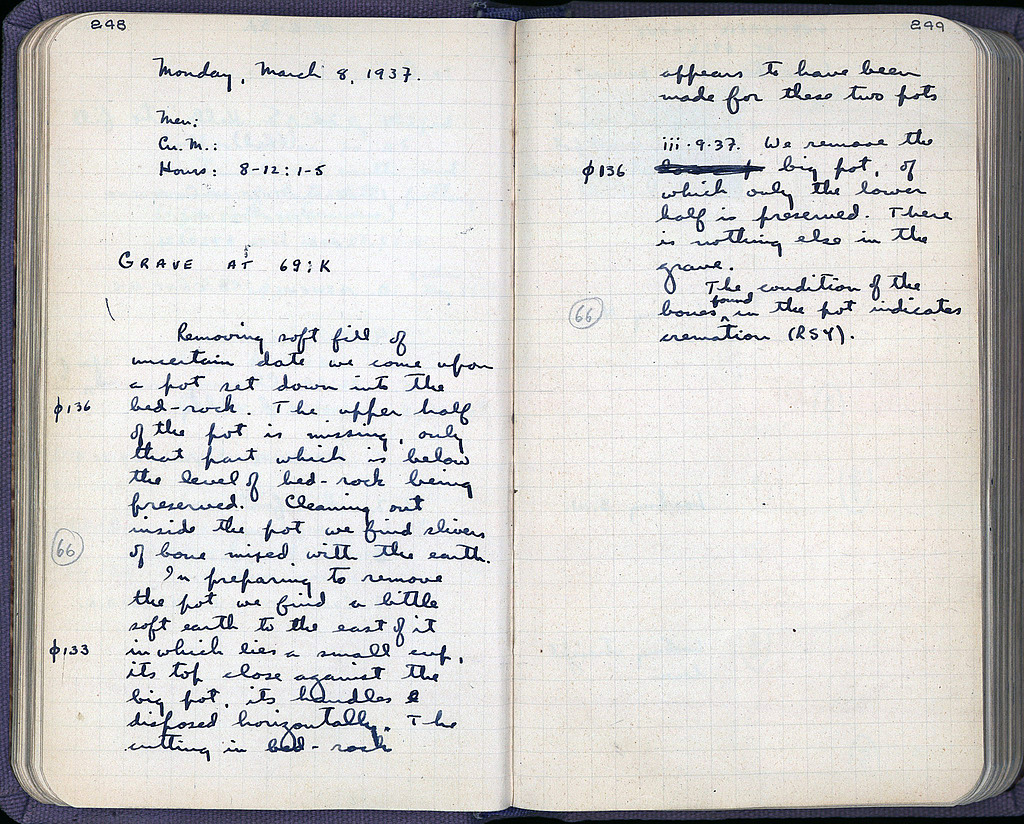 248
Monday, March 8, 1937.
Men:
Cu. M.:
Hours: 8-12 : 1-5
GRAVE AT 69:K
Removing soft fill of
uncertain date we come upon
a pot set down into the
ϕ136 bed-rock. The upper half
of the pot is missing, only
that part which is below
the level of bed-rock being
preserved. Cleaning out
inside the pot we find slivers
66 of bone mixed with the earth.
In preparing to remove
the pot we find a little
soft earth to the east of it
ϕ133 in which lies a small cup,
its top close against the
big pot, its handles
disposed horizontally. The
cutting in bed-rock
249
appears to have been
made for these two pots
iii.9.37. We remove the
ϕ136 big pot, of
which only the lower
half is preserved. There
is nothing else in the
grave.
The condition of the
66 bones found in the pot indicates
cremation (RSY).